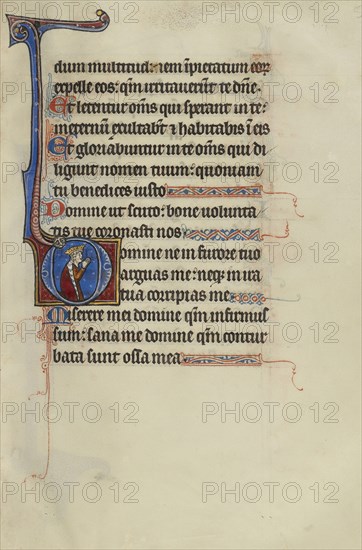 dum multitud: nem īpietatum eor
expelle eos: qm̄ irritauerūt te dn̄e.
Et letentur om̄s qui sperant in te:
in eternū exultabt̄ & habitabis ī eis
Et gloriabuntur in te om̄s qui di
ligunt nomen tuum: quoniam
tu benedices iusto
Domine ut scuto: bone volunta
tis tue coronasti nos
Domine ne in furore tuo
arguas me: neq; in ira
tua corripias me
Miserere mei domine qm̄ infirmus
sum: sana me domine qm̄ contur
bata sunt ossa mea
PHOTO 12